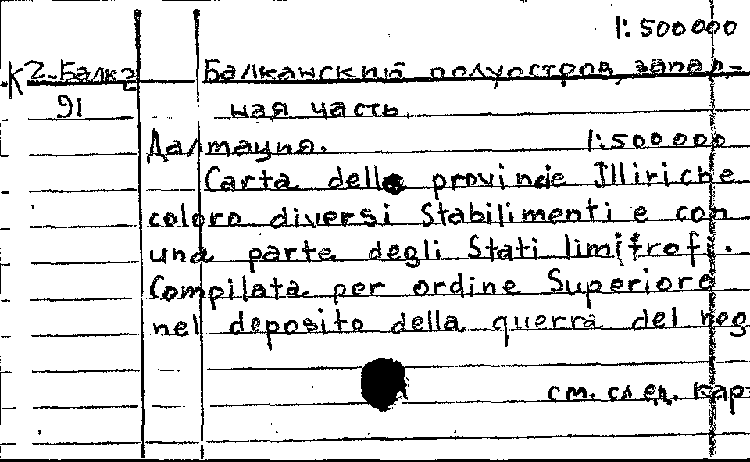 1:500000
К 2-Балк 2 Балканский полуостров, запад-
91 ная часть.
Далмация. 1:500000
Carta delle provincie Illiriche
coloro diversi Stabilimenti e con
una parte degli Stati limitrofi.
Compilata per ordine Superiore
nel deposito della querra del Reg
см. след. кар